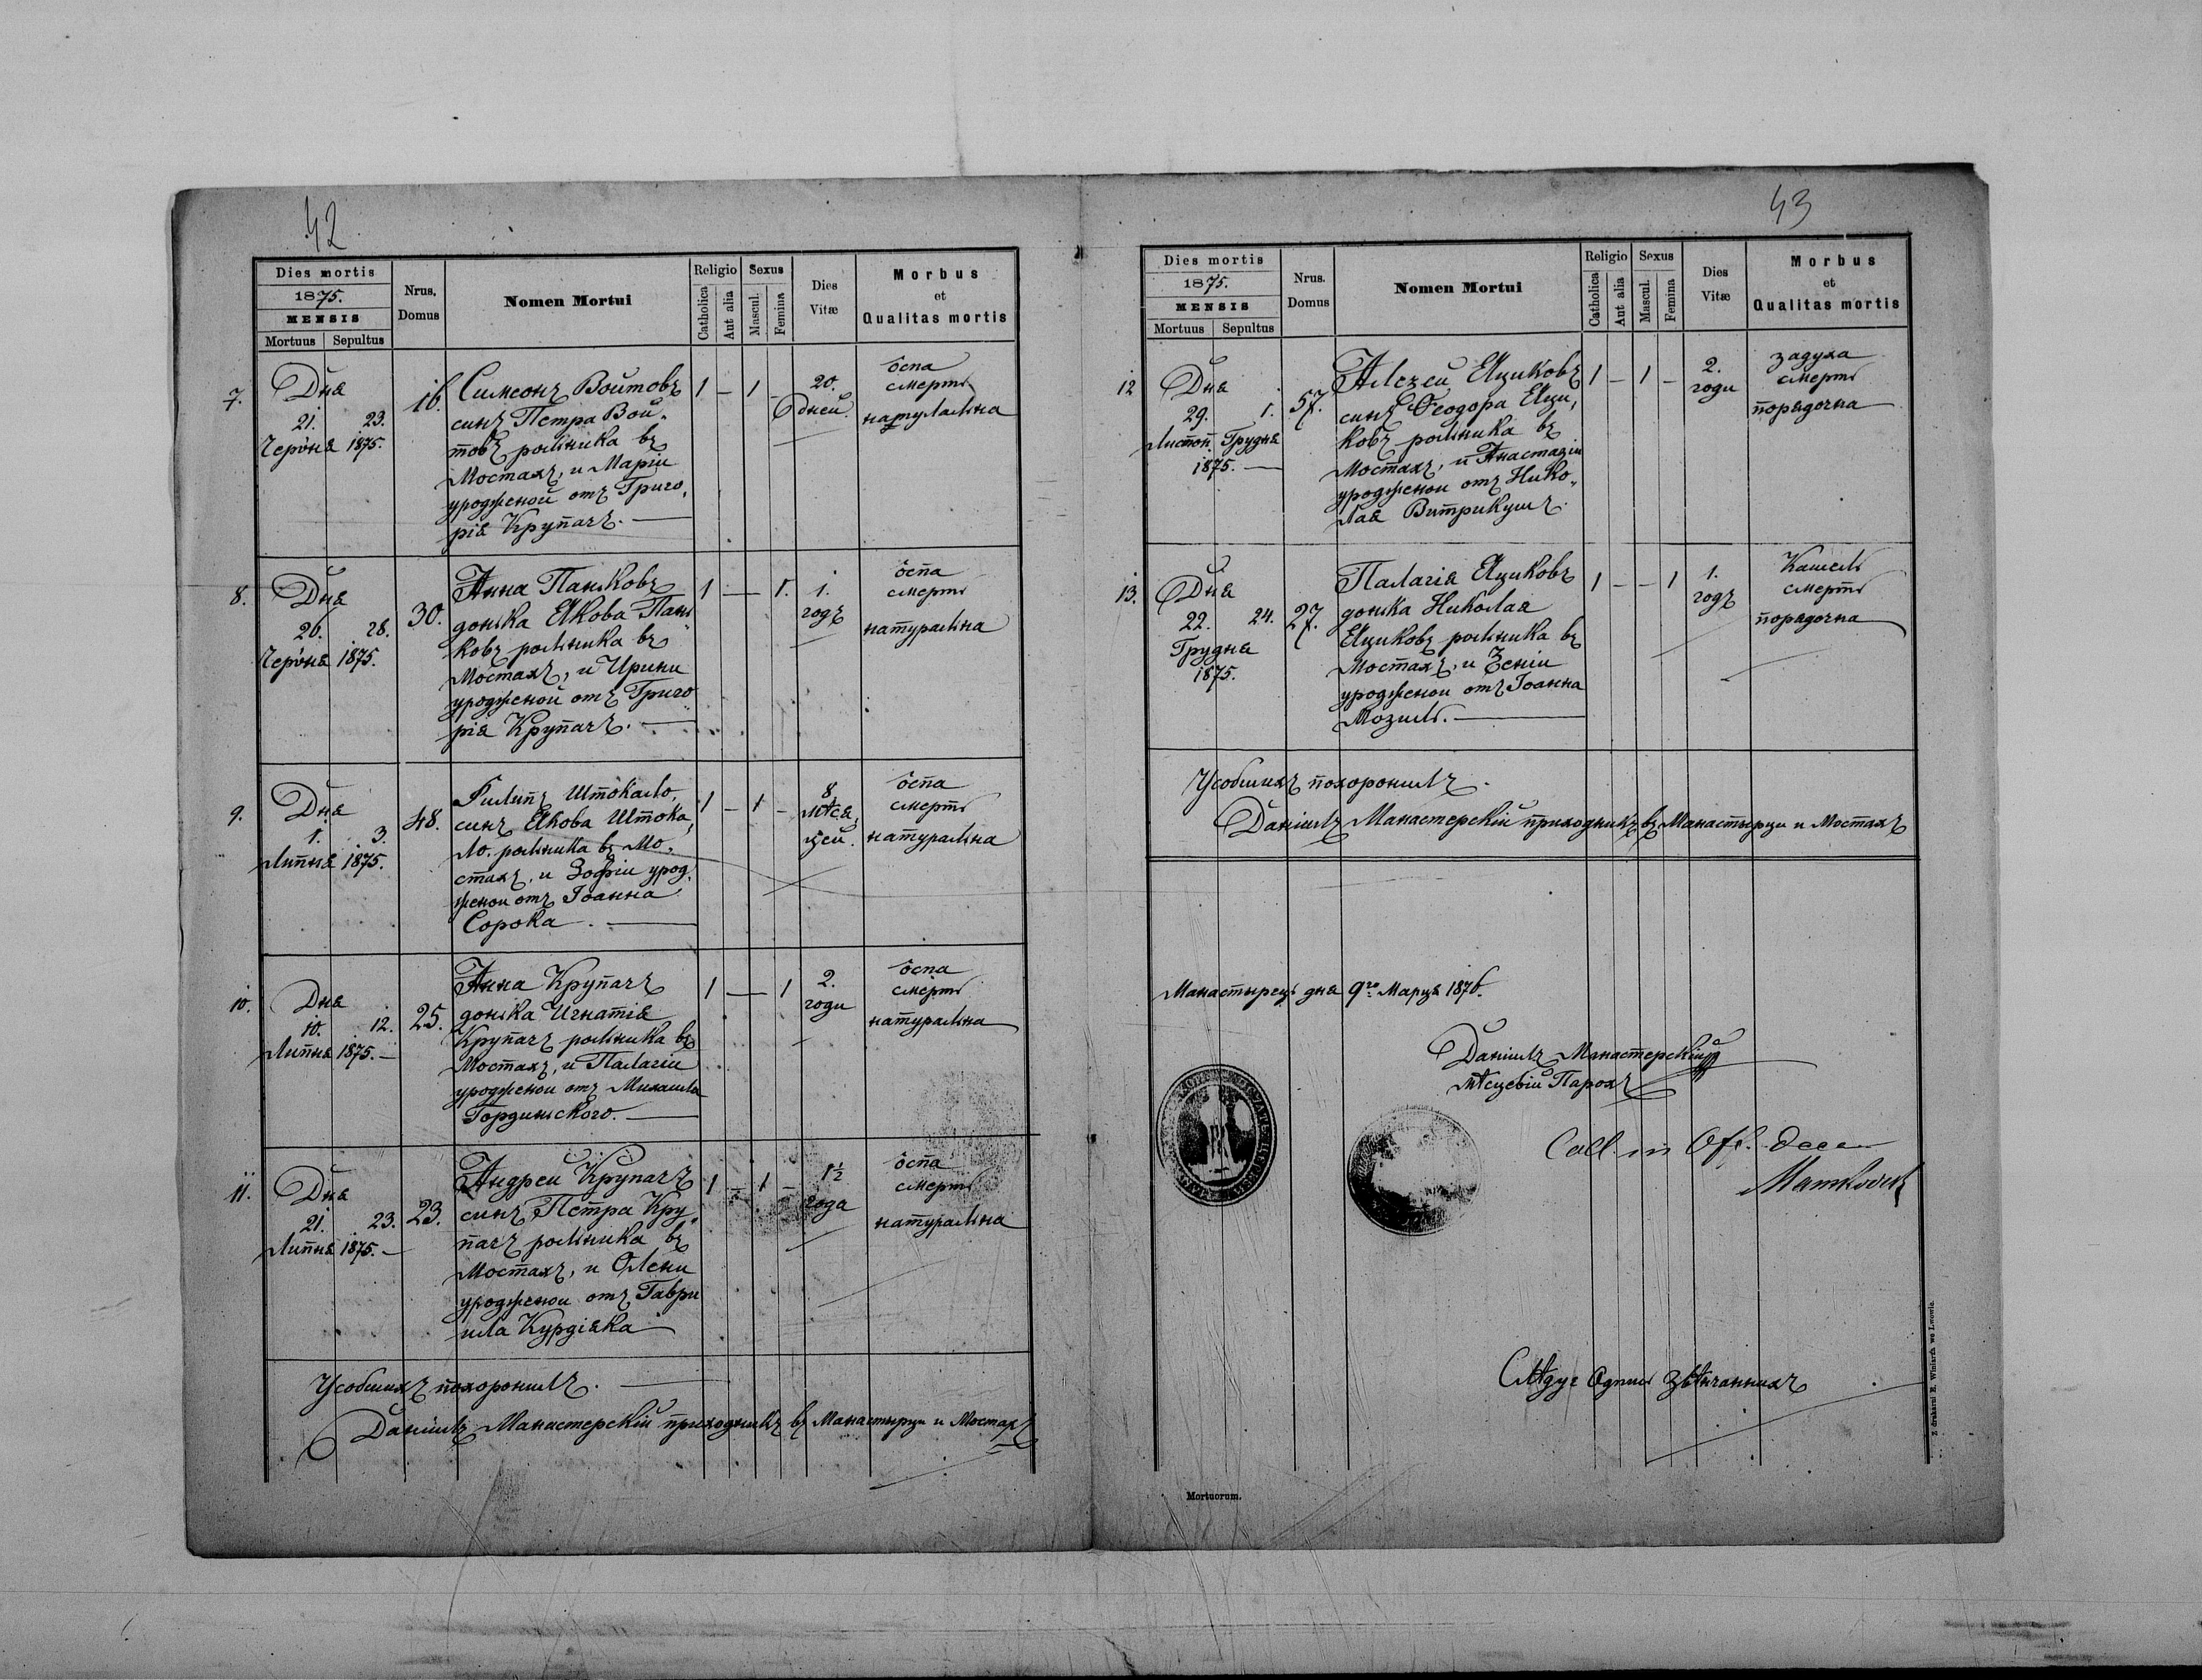 42
Dies mortis
1875.
MENSIS
Mortuus Sepultus
Nrus. Domus
Nomen Mortui
Religio
Catholica
Aut alia
Sexus
Mascul.
Femina
Dies Vitæ
Morbus
et
Qualitas mortis
7.
Дня
21. 23.
Червня 1875.
16.
Симеонъ Войтовъ
синъ Петра Вой„
товъ рольника въ
Мостахъ, и Маріи
урожденой отъ Григо„
рія Крупачъ.
1 — 1 —
20.
дней.
ôспа
смерть
натуральна
8.
Дня
26. 28.
Червня 1875.
30.
Анна Паньковъ
донька Якова Пань„
ковъ рольника въ
Мостахъ, и Ирини
урожденой отъ Григо„
рія Крупачъ.
1 — 1.
1.
годъ
ôспа
смерть
натуральна
9.
Дня
1. 3.
Липня 1875.
48.
Филипъ Штокало,
синъ Якова Штока„
ло. рольника въ Мо„
стахъ, и Зофіи урод„
женои отъ Іоанна
Сорока.
1 — 1 —
8
мѣся„
цей.
ôспа
смерть
натуральна
10.
Дня
10. 12.
Липня 1875.—
25.
Анна Крупачъ
донька Игнатія
Крупачъ рольника въ
Мостахъ, и Палагіи
урожденои отъ Михаила
Гординьского.
1 — 1
2.
годи
ôспа
смерть
натуральна
11.
Дня
21. 23.
Липня 1875.—
23.
Андрей Крупачъ
синъ Петра Кру„
пачъ рольника въ
Мостахъ, и Олени
урожденои отъ Гаври
ила Курдіяка
1 — 1 —
1½
года
ôспа
смерть
натуральна
Усобшихъ похоронилъ.
Даніилъ Манастерскій приходникъ въ Манастырци и Мостахъ
43
Dies mortis
1875.
MENSIS
Mortuus Sepultus
Nrus. Domus
Nomen Mortui
Religio
Catholica
Aut alia
Sexus
Mascul.
Femina
Dies Vitæ
Morbus
et
Qualitas mortis
12
Дня
29. 1.
Листоп. Грудня
1875.—
57.
Алезей Яциковъ
синъ Ѳеодора Яци„
ковъ рольника въ
Мостахъ, и Анастазіи
урожденои отъ Нико„
лая Витрикушъ.
1 — 1 —
2.
годи
задуха
смерть
порядочна
13.
Дня
22. 24.
Грудня
1875.
27.
Палагія Яциковъ
донька Николая
Яциковъ рольника въ
Мостахъ, и Зеніи
урожденои отъ Іоанна
Мозиль.
1 — — 1
1.
годъ
Кашель
смерть
порядочна
Усобшихъ похоронилъ.
Даніилъ Манастерскій приходникъ въ Манастырци и Мостахъ
Манастырець дня 9го Марця 1876.
Даніилъ Манастерскій
мѣсцевій Парохъ
Coll in Off.
Слѣдує Одписъ звѣнчанныхъ
Mortuorum.
Z drukarni E. Winiarza we Lwowie.